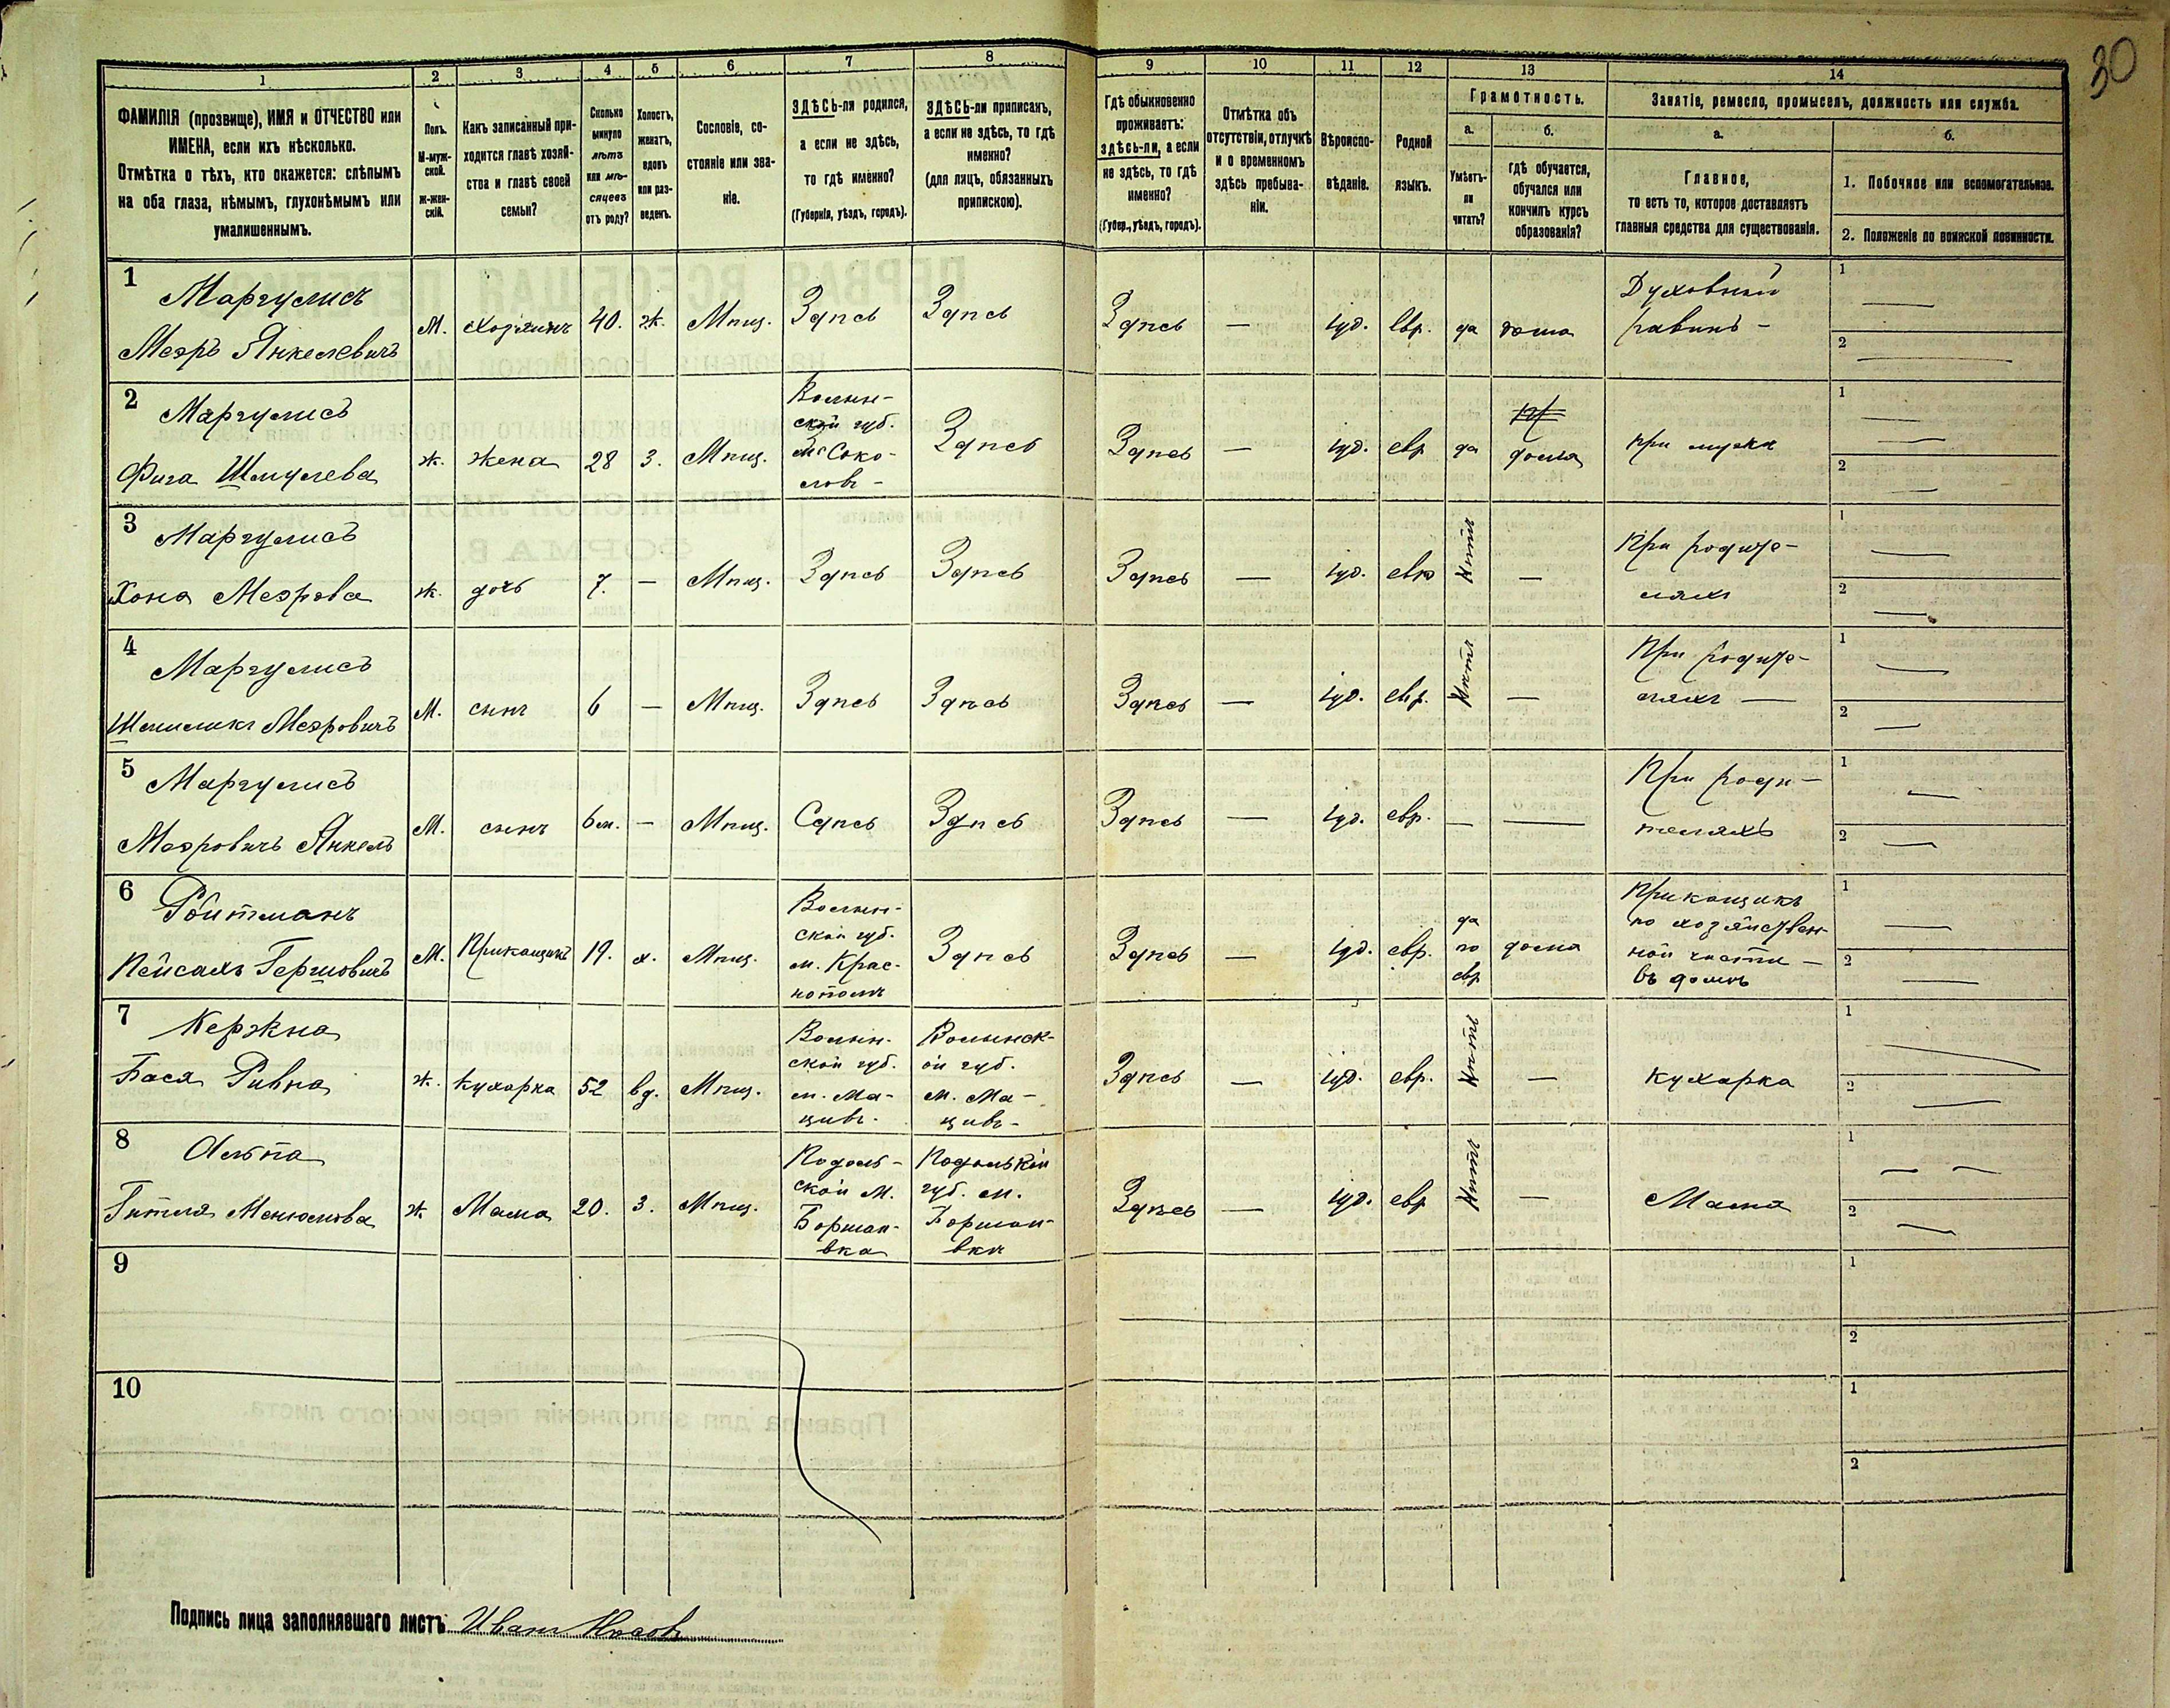 30
1 2 3 4 5 6 7 8 9 10 11 12 13 14
ФАМИЛІЯ (прозвище), ИМЯ и ОТЧЕСТВО или
ИМЕНА, если ихъ нѣсколько.
Отмѣтка о тѣхъ, кто окажется: слѣпымъ
на оба глаза, нѣмымъ, глухонѣмымъ или
умалишеннымъ.
Полъ.
М-муж-
ской.
Ж-жен-
скій.
Какъ записанный при-
ходится главѣ хозяй-
ства и главѣ своей
семьи?
Сколько
минуло
лѣтъ
или мѣ-
сяцевъ
отъ роду?
Холостъ,
женатъ,
вдовъ
или раз-
веденъ.
Сословіе, со-
стояніе или зва-
ніе.
ЗДѢСЬ-ли родился,
а если не здѣсь,
то гдѣ именно?
(Губернія, уѣздъ, городъ).
ЗДѢСЬ-ли приписанъ,
а если не здѣсь, то гдѣ
именно?
(для лицъ, обязанныхъ
припискою).
Гдѣ обыкновенно
проживаетъ:
здѣсь-ли, а если
не здѣсь, то гдѣ
именно?
(Губер., уѣздъ, городъ).
Отмѣтка объ
отсутствіи, отлучкѣ
и о временномъ
здѣсь пребыва-
ніи.
Вѣроиспо-
вѣданіе.
Родной
языкъ.
Грамотность.
а.
Умѣетъ-
ли
читать?
б.
гдѣ обучается,
обучался или
кончилъ курсъ
образованія?
Занятіе, ремесло, промыселъ, должность или служба.
а.
Главное,
то есть то, которое доставляетъ
главныя средства для существованія.
б.
1. Побочное или вспомогательное.
2. Положеніе по воинской повинности.
1 Маргулисъ
Меэръ Янкелевичъ
М. хозяинъ 40. ж. Мѣщ. Здѣсь Здѣсь Здѣсь — іуд. евр. да дома
Духовный
равинъ —
1 —
2 —
2 Маргулисъ
Фига Шмулева
ж. жена 28 3. Мѣщ.
Волын-
ской губ.
м. Соко-
ловъ —
Здѣсь Здѣсь — іуд. евр да дома при мужѣ
1 —
2 —
3 Маргулисъ
Хона Меэрова
ж. дочь 7. — Мѣщ. Здѣсь Здѣсь Здѣсь — іуд. евр нѣтъ —
При родите-
ляхъ
1 —
2 —
4 Маргулисъ
Шмиликъ Меэровичъ
М. сынъ 6 — Мѣщ. Здѣсь Здѣсь Здѣсь — іуд. евр. нѣтъ —
При родите-
ляхъ —
1 —
2 —
5 Маргулисъ
Меэровичъ Янкель
М. сынъ 6м. — Мѣщ. Сдѣсь Здѣсь Здѣсь — іуд. евр. — —
При роди-
теляхъ
1 —
2 —
6 Ройтманъ
Пейсахъ Гершовичъ
М. Прикащикъ 19. х. Мѣщ.
Волын-
ской губ.
м. Крас-
нополь
Здѣсь Здѣсь — іуд. евр.
да
по
евр
дома
Прикащикъ
по хозяйствен-
ной части —
въ домѣ
1 —
2 —
7 Кержна
Бася Ривна
ж. кухарка 52 вд. Мѣщ.
Волын-
ской губ.
м. Ма-
цивъ.
Волынск-
ой губ.
м. Ма-
цивъ —
Здѣсь — іуд. евр. нѣтъ — кухарка
1 —
2 —
8 Гитля Менюмова
ж Мама 20. 3. Мѣщ.
Подоль-
ской м.
Воршов-
вка
губ. м.
вка
Здѣсь — іуд. евр нѣтъ — Мама
1 — —
2 —
9
1
2
10
1
2
Подпись лица заполнявшаго листъ Иванъ